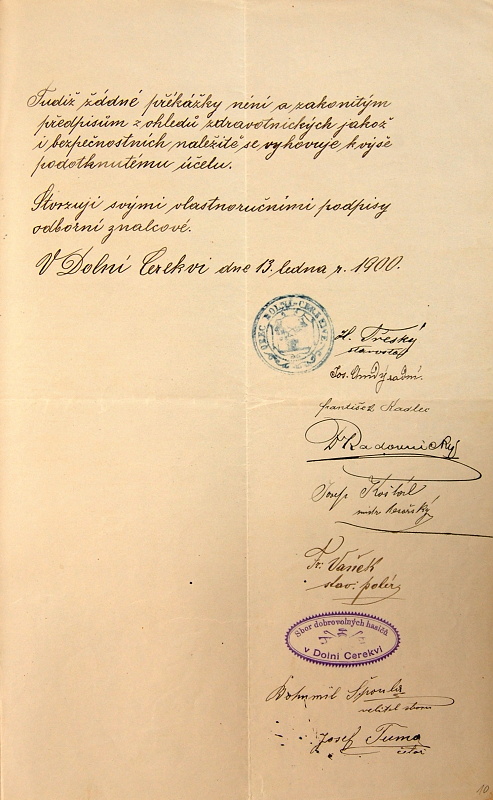 Tudiž žádné překážky není a zakonitým
předpisům z ohledů zdravotnických jakož
i bezpečnostních naležitě se vyhovuje k výše
podotknutému účelu.
Stvrzuji svými vlastnoručními podpisy
odborní znalcové.
V Dolní Cerekvi dne 13. ledna r. 1900.
OBEC DOLNÍ-CEREKVE
Třeský
starosta
Jos. radní.
František Kadlec
Dr Radovnický
Josef Košťál
mistr
Fr. Vaněk
stav. polír
Sbor dobrovolných hasičů
v Dolní Cerekvi
Bohumil Špourla
velitel sboru
Josef Tuma
10